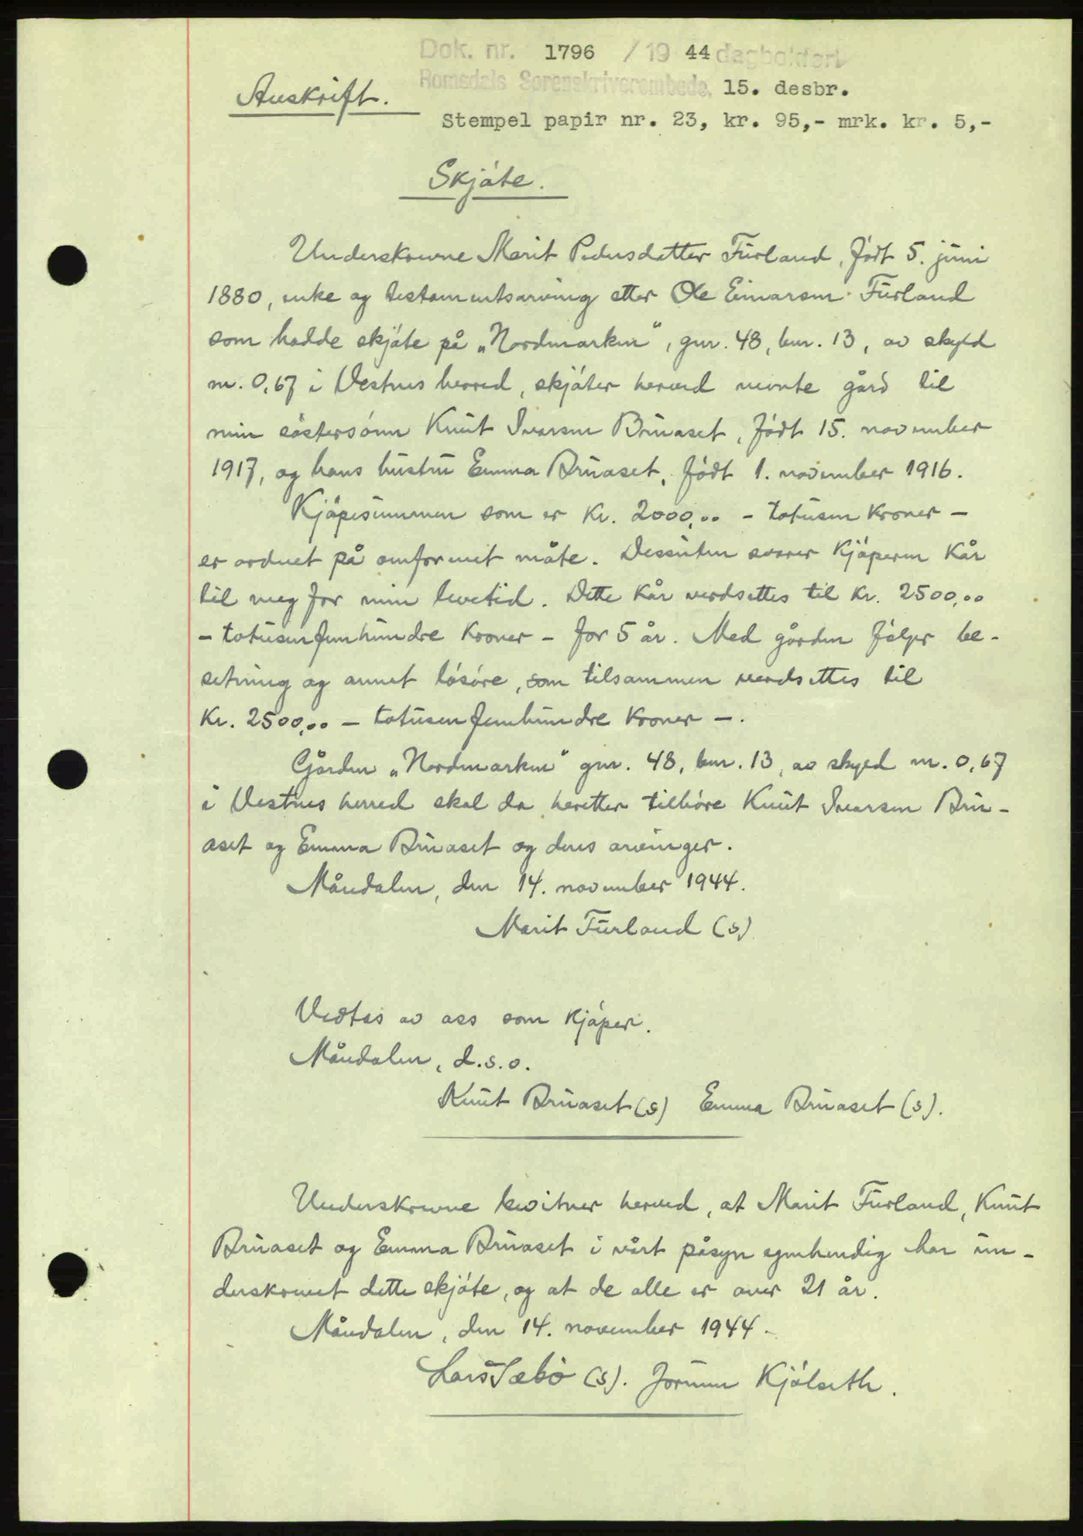 Dok. nr. 1796 / 19 44 dagbokført
Romsdals Sorenskriverembede, 15. desbr.
Avskrift.
Stempel papir nr. 23, kr. 95,- mrk. kr. 5,-
Skjøte.
Underskrevne Marit Pedersdatter Furland, født 5. juni
1880, enke og testamentsarving etter Ole Einarsen Furland
som hadde skjøte på „Nordmarken", gnr. 48, bnr. 13, av skyld
m. 0,67 i Vestnes herred, skjøter herved nevnte gård til
min søstersønn Knut Ivarsen Bruaset, født 15. november
1917, og hans hustru Emma Bruaset, født 1. november 1916.
Kjøpesummen som er kr. 2000,00 - totusen kroner -
er ordnet på omforenet måte. Dessuten svarer kjøperen kår
til meg for min levetid. Dette kår verdsettes til kr. 2500,00
- totusenfemhundre kroner - for 5 år. Med gården følger be-
setning og annet løsøre, som tilsammen verdsettes til
kr. 2500,00 - totusenfemhundre kroner -.
Gården „Nordmarken" gnr. 48, bnr. 13, av skyld m. 0,67
i Vestnes herred skal da heretter tilhøre Knut Ivarsen Bru-
aset og Emma Bruaset og deres arvinger.
Måndalen, den 14. november 1944.
Marit Furland (s)
Vedtas av oss som kjøper.
Måndalen, d.s.o.
Knut Bruaset (s) Emma Bruaset (s).
Underskrevne bevitner herved, at Marit Furland, Knut
Bruaset og Emma Bruaset i vårt påsyn egenhendig har un-
derskrevet dette skjøte, og at de alle er over 21 år.
Måndalen, den 14. november 1944.
Lars Sæbø (s). Jorunn Kjølseth.